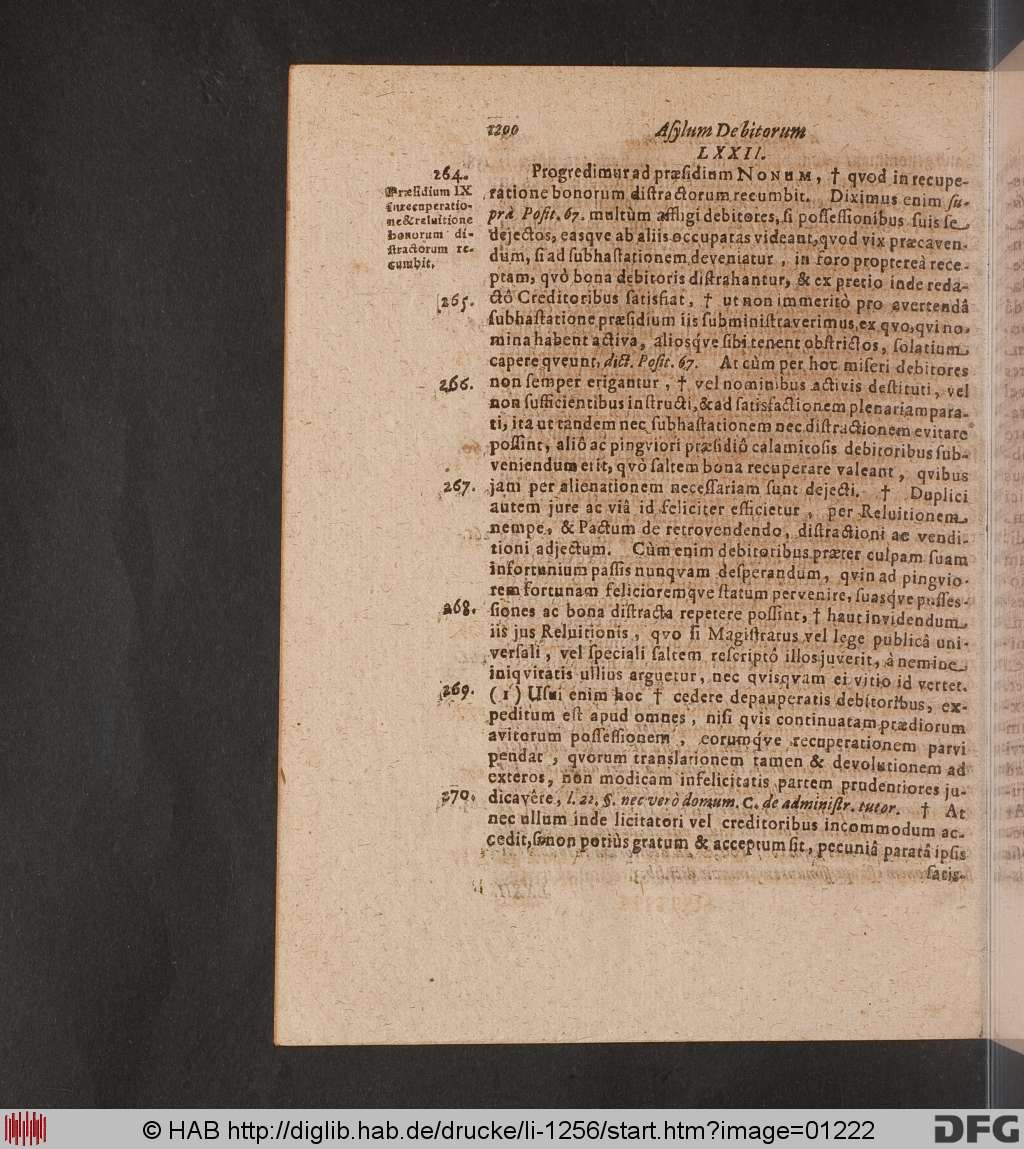 1200
Asylum Debitorum
LXXII.
264.
Præsidium IX
in recuperatio-
ne & reluitione
bonorum di-
stractorum re-
cumbit.
Progredimur ad præsidium NONUM, † qvod in recupe-
ratione bonorum distractorum recumbit. Diximus enim su-
prà Posit. 67. multùm affligi debitores, si possessionibus suis se
dejectos, easqve ab aliis occupatas videant, qvod vix præcaven-
dum, si ad subhastationem deveniatur, in foro proptereà rece-
ptam, qvò bona debitoris distrahantur, & ex pretio inde reda-
265.
ctô Creditoribus satisfiat, † ut non immeritò pro avertendâ
subhastatione præsidium iis subministraverimus, ex qvo, qvi no-
mina habent activa, aliosqve sibi tenent obstrictos, solatium
capere qveunt, dict. Posit. 67. At cùm per hoc miseri debitores
266.
non semper erigantur, † vel nominibus activis destituti, vel
non sufficientibus instructi, & ad satisfactionem plenariam para-
ti, ita ut tandem nec subhastationem nec distractionem evitare
possint, aliô ac pingviori præsidiô calamitosis debitoribus sub-
veniendum erit, qvò saltem bona recuperare valeant, qvibus
267.
jam per alienationem necessariam sunt dejecti. † Duplici
autem jure ac viâ id feliciter efficietur, per Reluitionem
nempe, & Pactum de retrovendendo, distractioni ac vendi-
tioni adjectum. Cùm enim debitoribus præter culpam suam
infortunium passis nunqvam desperandum, qvin ad pingvio-
rem fortunam felicioremqve statum pervenire, suasqve posses-
268.
siones ac bona distracta repetere possint, † haut invidendum
iis jus Reluitionis, qvo si Magistratus vel lege publicâ uni-
versali, vel speciali saltem rescriptô illos juverit, à nemine
iniqvitatis ullius arguetur, nec qvisqvam ei vitio id vertet.
269.
(1) Usui enim hoc † cedere depauperatis debitoribus, ex-
peditum est apud omnes, nisi qvis continuatam prædiorum
avitorum possessionem, eorumqve recuperationem parvi
pendat, qvorum translationem tamen & devolutionem ad
exteros, non modicam infelicitatis partem prudentiores ju-
270.
dicavêre, l. 22. §. nec verò domum. C. de administr. tutor. † At
nec ullum inde licitatori vel creditoribus incommodum ac-
cedit, si non potiùs gratum & acceptum sit, pecuniâ paratâ ipsis
satis-
© HAB http://diglib.hab.de/drucke/li-1256/start.htm?image=01222
DFG